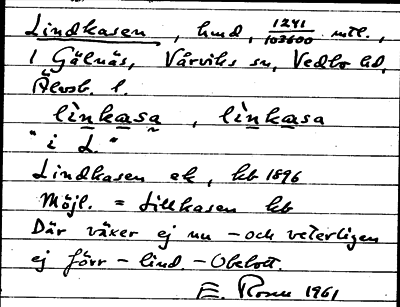 Lindkasen, hmd, 1241/103600 mtl.,
1 Gälnäs, Vårviks sn, Vedbo hd,
Älvsb. l.
lìnkasa, lìnkasa
"i L."
Lindkasen ek, kb 1896
Möjl. = Lillkasen kb
Där växer ej nu – och veterligen
ej förr – lind. – Obebott.
E. Rosén 1961